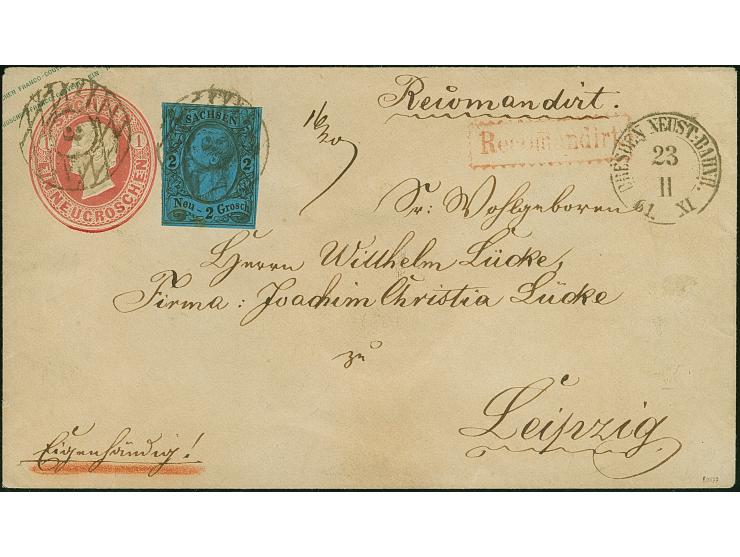 SACHSEN
2 2
Neu - 2 Grosch
1 1
EIN NEUGROSCHEN
16/20
Recomandirt.
Recomandirt
DRESDEN NEUST.-BAHNH.
23
II
61. XI
Sr: Wohlgeboren
Herrn Willhelm Lücke,
Firma: Joachim Christia Lücke
zu
Leipzig
Eigenhändig!